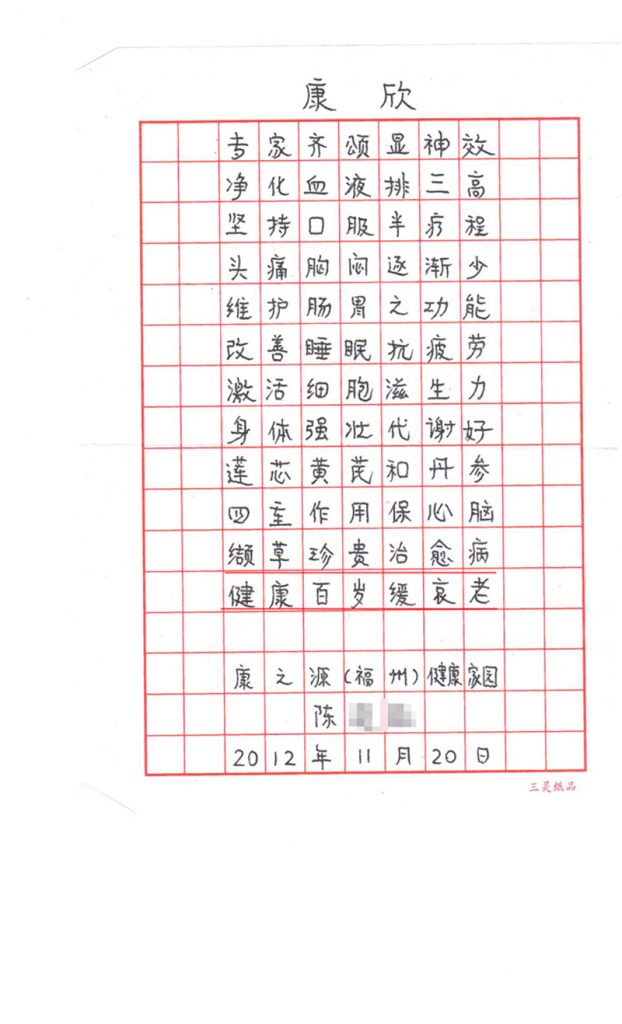 康 欣
专家齐颂显神效
净化血液排三高
坚持口服半疗程
头痛胸闷逐渐少
维护肠胃之功能
改善睡眠抗疲劳
激活细胞滋生力
身体强壮代谢好
莲芯黄芪和丹参
四主作用保心脑
缬草珍贵治愈病
健康百岁缓衰老
康之源(福州)健康家园
陈
2012年11月20日
三灵纸品